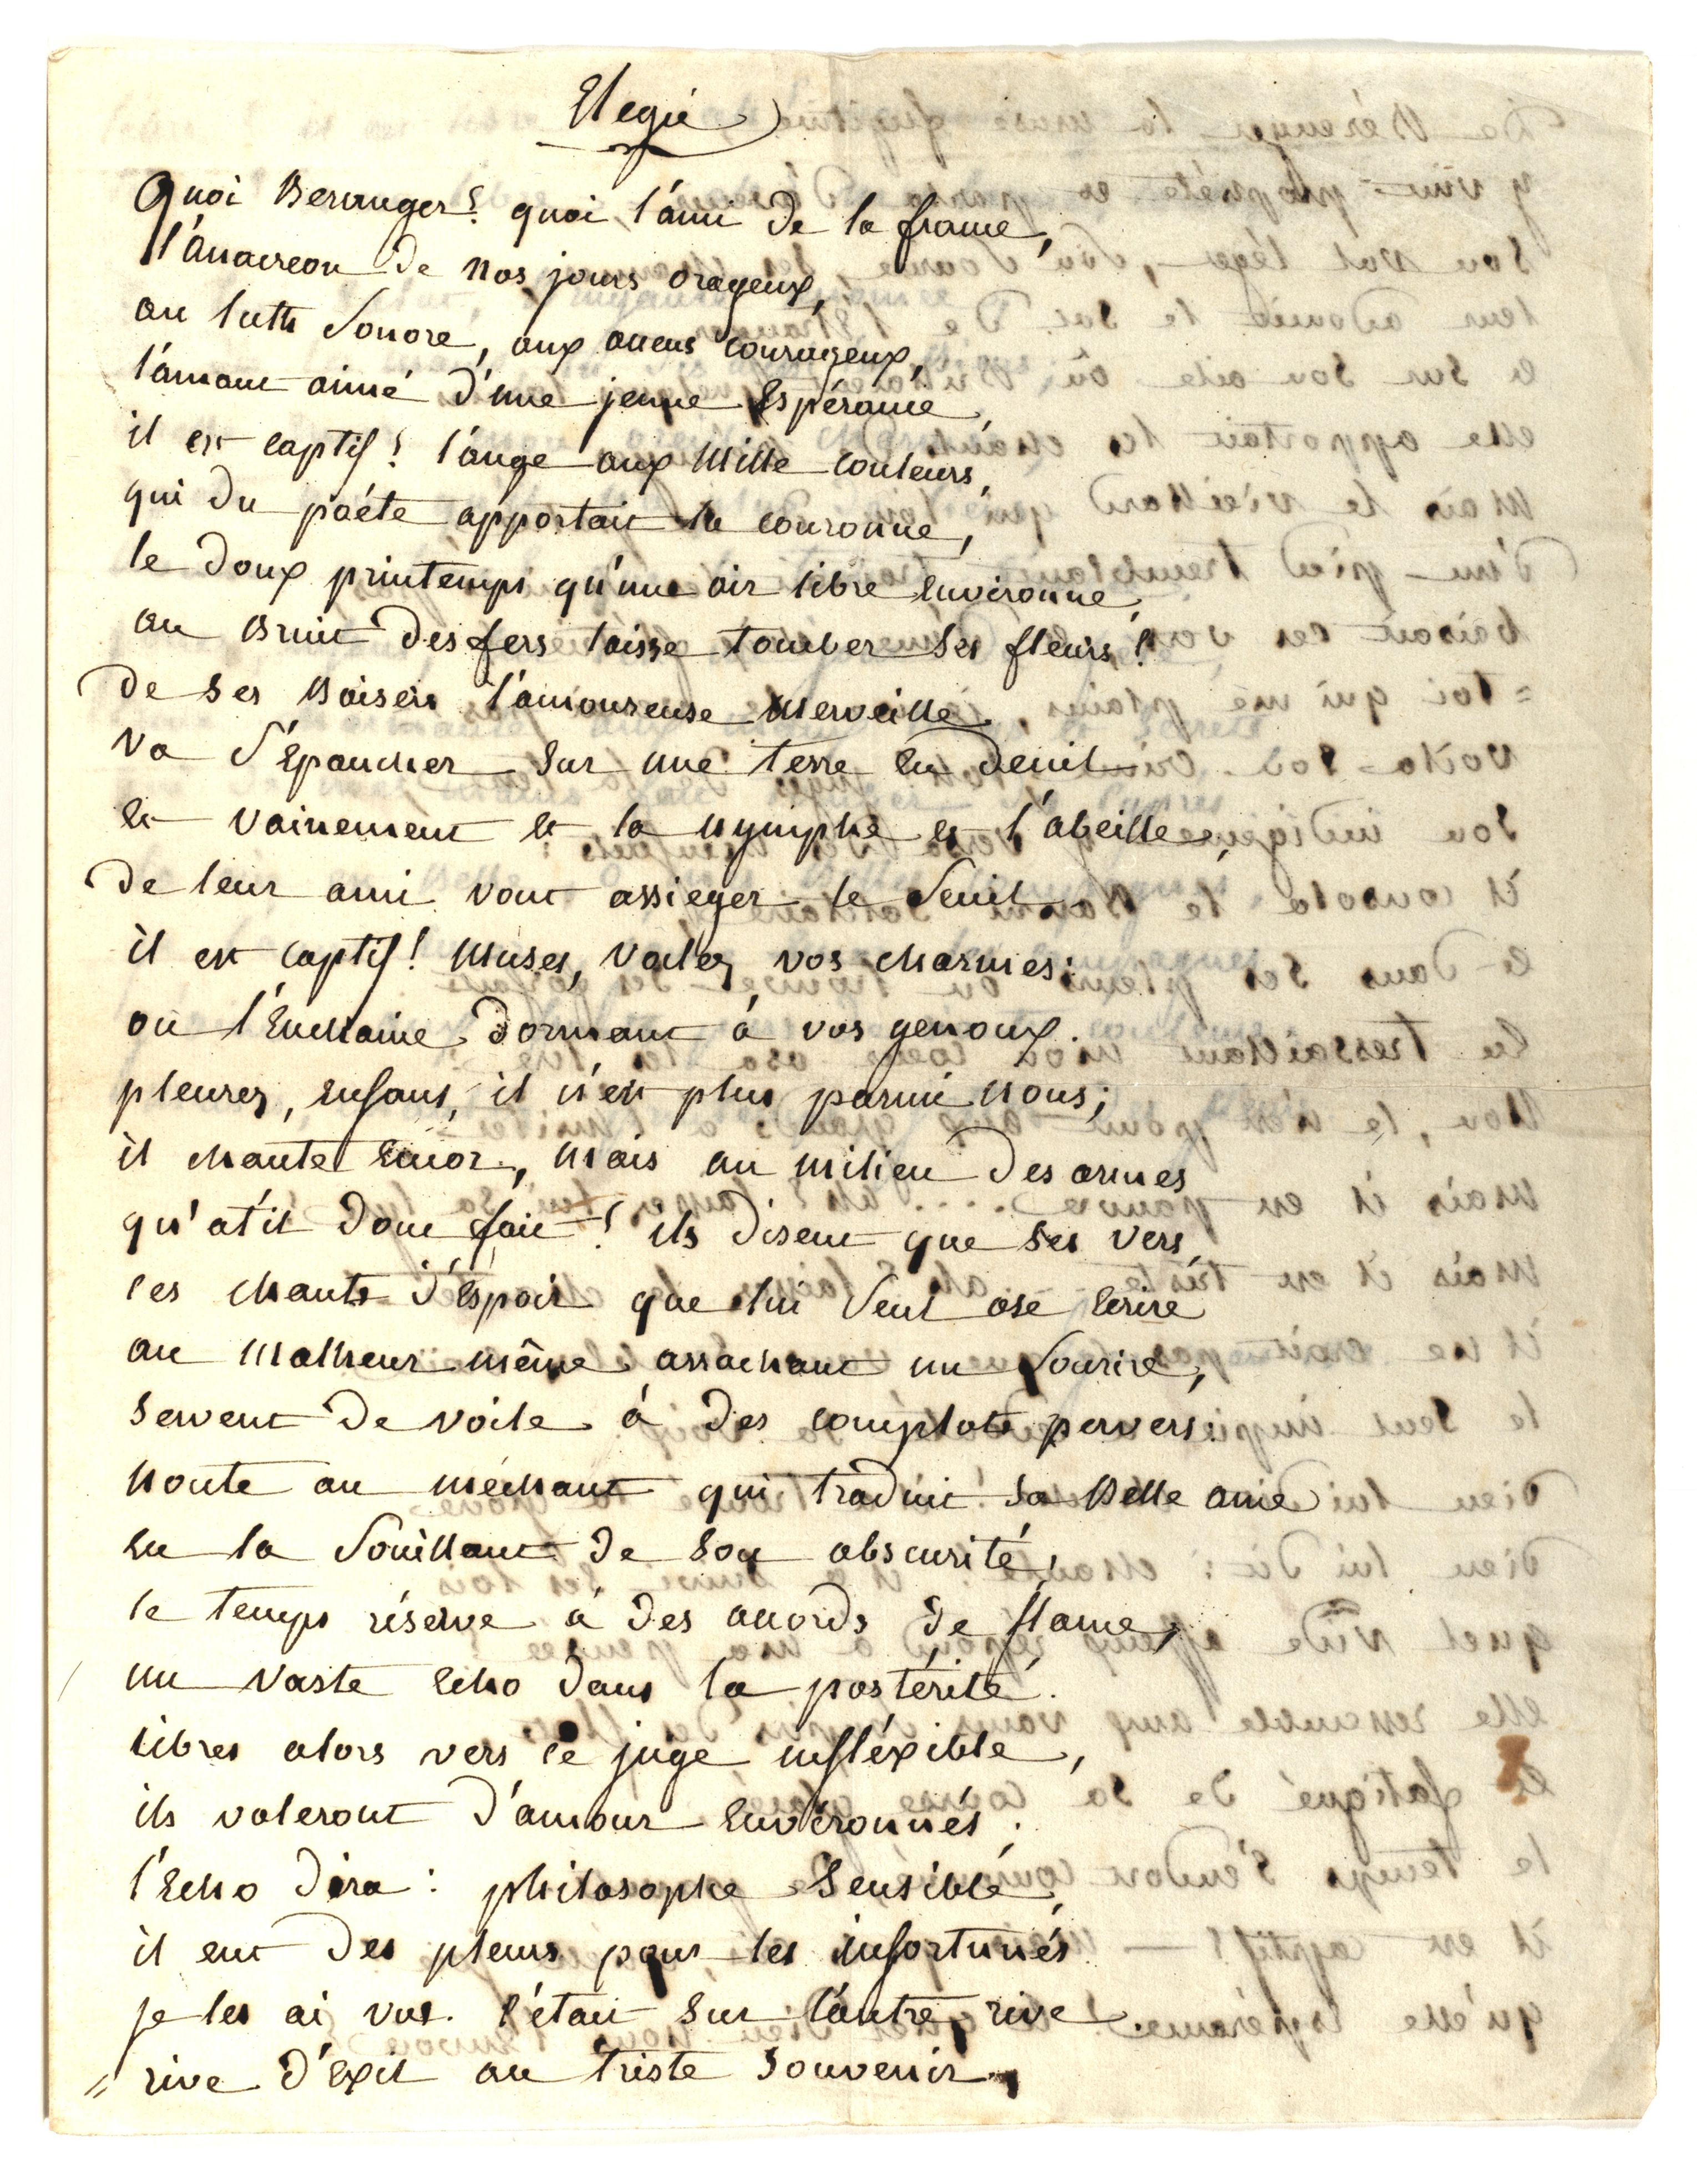 Elegie
Quoi Beranger ! quoi l'ami de la france,
l'anacreon de nos jours orageux,
au luth sonore, aux accens courageux,
l'amant aimé d'une jeune Espérance,
il est captif ! l'ange aux Mille couleurs,
qui du poéte apportait la couronne,
le doux printemps qu'une air libre environne,
au Bruit des fers laisse tomber ses fleurs !
de ses Baisers l'amoureuse Merveille
va s'épancher sur une terre en deuil
et vainement et la nymphe et l'abeille,
de leur ami vont assieger le seuil.
il est captif ! Muses, voilez vos charmes :
on l'Enchaine dormant à vos genoux.
pleurez, enfans, il n'est plus parmi nous ;
il chante encor, Mais au milieu des armes
qu'at'il donc fait ! ils disent que ses vers,
ces chants d'Espoir que lui seul ose ecrire
au Malheur même arrachant un sourire,
servent de voile à des complots pervers.
honte au méchant qui traduit sa Belle ame
en la souillant de son obscurité,
le temps réserve à des accords de flame,
un vaste echo dans la postérité.
libres alors vers ce juge infléxible,
ils voleront d'amour environnés ;
l'Echo dira : philosophe sensible,
il eut des pleurs pour les infortunés
je les ai vus. c'était sur l'autre rive
= rive d'Exil au triste souvenir,